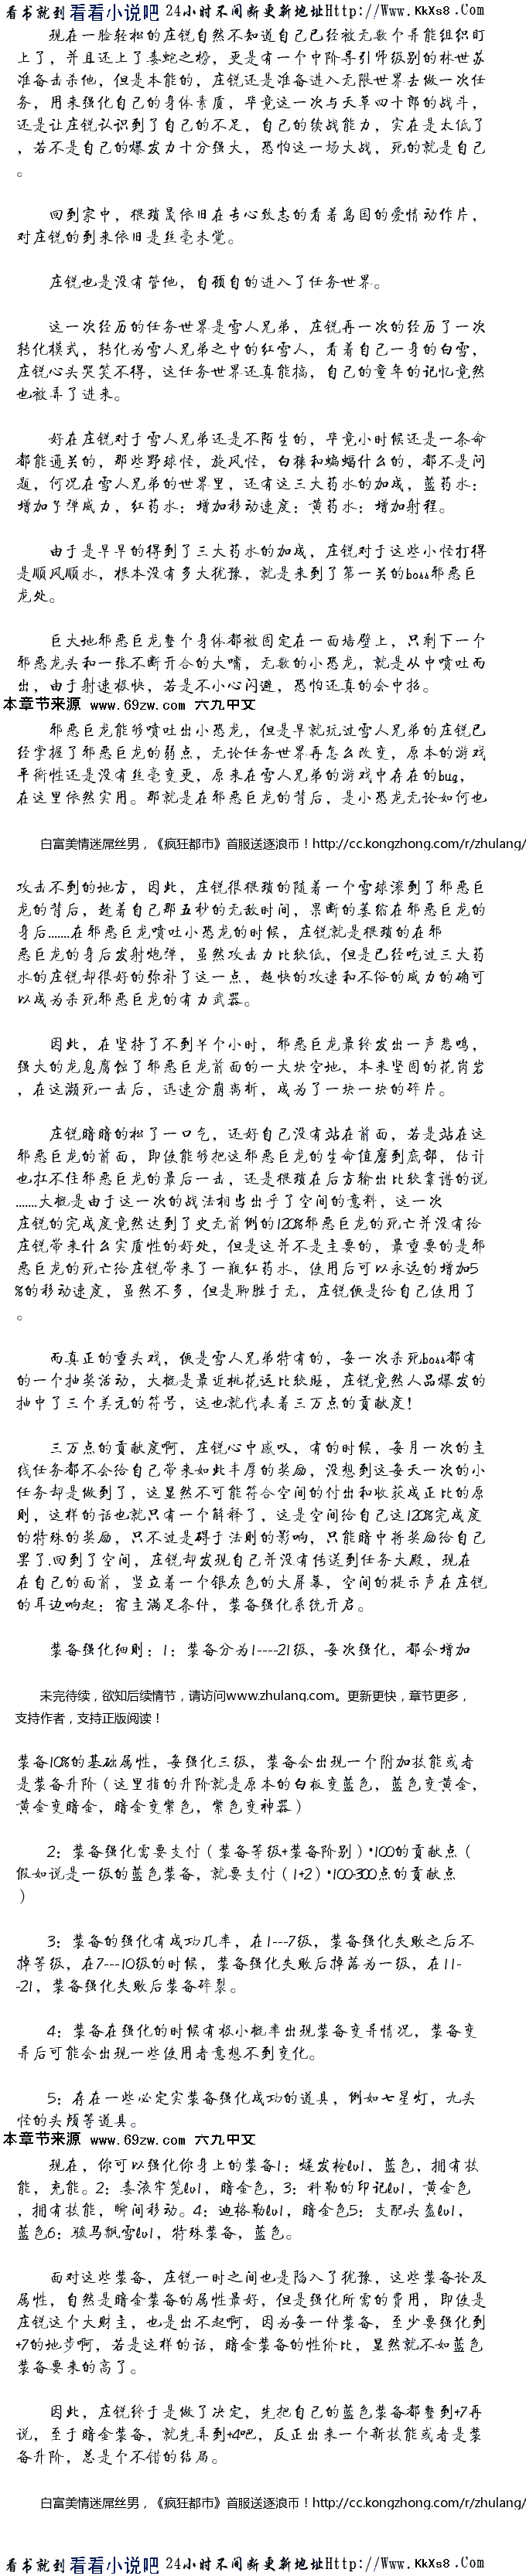 看书就到 看看小说吧 24小时不间断更新地址Http://Www.KkXs8.Com
现在一脸轻松的庄锐自然不知道自己已经被无数个异能组织盯
上了，并且还上了毒蛇之榜，更是有一个中阶导引师级别的林世苏
准备击杀他，但是本能的，庄锐还是准备进入无限世界去做一次任
务，用来强化自己的身体素质，毕竟这一次与天草四十郎的战斗，
还是让庄锐认识到了自己的不足，自己的续战能力，实在是太低了
，若不是自己的爆发力十分强大，恐怕这一场大战，死的就是自己
。
回到家中，猥琐晟依旧在专心致志的看着岛国的爱情动作片，
对庄锐的到来依旧是丝毫未觉。
庄锐也是没有管他，自顾自的进入了任务世界。
这一次经历的任务世界是雪人兄弟，庄锐再一次的经历了一次
转化模式，转化为雪人兄弟之中的红雪人，看着自己一身的白雪，
庄锐心头哭笑不得，这任务世界还真能搞，自己的童年的记忆竟然
也被弄了进来。
好在庄锐对于雪人兄弟还是不陌生的，毕竟小时候还是一条命
都能通关的，那些野球怪，旋风怪，白猿和蝙蝠什么的，都不是问
题，何况在雪人兄弟的世界里，还有这三大药水的加成，蓝药水：
增加子弹威力，红药水：增加移动速度：黄药水：增加射程。
由于是早早的得到了三大药水的加成，庄锐对于这些小怪打得
是顺风顺水，根本没有多大犹豫，就是来到了第一关的boss邪恶巨
龙处。
巨大地邪恶巨龙整个身体都被固定在一面墙壁上，只剩下一个
邪恶龙头和一张不断开合的大嘴，无数的小恐龙，就是从中喷吐而
出，由于射速极快，若是不小心闪避，恐怕还真的会中招。
本章节来源 www.69zw.com 六九中文
邪恶巨龙能够喷吐出小恐龙，但是早就玩过雪人兄弟的庄锐已
经掌握了邪恶巨龙的弱点，无论任务世界再怎么改变，原本的游戏
平衡性还是没有丝毫变更，原来在雪人兄弟的游戏中存在的bug，
在这里依然实用。那就是在邪恶巨龙的背后，是小恐龙无论如何也
白富美情迷屌丝男，《疯狂都市》首服送逐浪币！http://cc.kongzhong.com/r/zhulang/
攻击不到的地方，因此，庄锐很猥琐的随着一个雪球滚到了邪恶巨
龙的背后，趁着自己那五秒的无敌时间，果断的萎缩在邪恶巨龙的
身后.......在邪恶巨龙喷吐小恐龙的时候，庄锐就是猥琐的在邪
恶巨龙的身后发射炮弹，虽然攻击力比较低，但是已经吃过三大药
水的庄锐却很好的弥补了这一点，超快的攻速和不俗的威力的确可
以成为杀死邪恶巨龙的有力武器。
因此，在坚持了不到半个小时，邪恶巨龙最终发出一声悲鸣，
强大的龙息腐蚀了邪恶巨龙前面的一大块空地，本来坚固的花岗岩
，在这濒死一击后，迅速分崩离析，成为了一块一块的碎片。
庄锐暗暗的松了一口气，还好自己没有站在前面，若是站在这
邪恶巨龙的前面，即使能够把这邪恶巨龙的生命值磨到底部，估计
也扛不住邪恶巨龙的最后一击，还是猥琐在后方输出比较靠谱的说
.......大概是由于这一次的战法相当出乎了空间的意料，这一次
庄锐的完成度竟然达到了史无前例的120%邪恶巨龙的死亡并没有给
庄锐带来什么实质性的好处，但是这并不是主要的，最重要的是邪
恶巨龙的死亡给庄锐带来了一瓶红药水，使用后可以永远的增加5
%的移动速度，虽然不多，但是聊胜于无，庄锐便是给自己使用了
。
而真正的重头戏，便是雪人兄弟特有的，每一次杀死boss都有
的一个抽奖活动，大概是最近桃花运比较旺，庄锐竟然人品爆发的
抽中了三个美元的符号，这也就代表着三万点的贡献度！
三万点的贡献度啊，庄锐心中感叹，有的时候，每月一次的主
线任务都不会给自己带来如此丰厚的奖励，没想到这每天一次的小
任务却是做到了，这显然不可能符合空间的付出和收获成正比的原
则，这样的话也就只有一个解释了，这是空间给自己这120%完成度
的特殊的奖励，只不过是碍于法则的影响，只能暗中将奖励给自己
罢了.回到了空间，庄锐却发现自己并没有传送到任务大殿，现在
在自己的面前，竖立着一个银灰色的大屏幕，空间的提示声在庄锐
的耳边响起：宿主满足条件，装备强化系统开启。
装备强化细则：1：装备分为1----21级，每次强化，都会增加
未完待续，欲知后续情节，请访问www.zhulang.com。更新更快，章节更多，
支持作者，支持正版阅读！
装备10%的基础属性，每强化三级，装备会出现一个附加技能或者
是装备升阶（这里指的升阶就是原本的白板变蓝色，蓝色变黄金，
黄金变暗金，暗金变紫色，紫色变神器）
2：装备强化需要支付（装备等级+装备阶别）*100的贡献点（
假如说是一级的蓝色装备，就要支付（1+2）*100-300点的贡献点
）
3：装备的强化有成功几率，在1---7级，装备强化失败之后不
掉等级，在7---10级的时候，装备强化失败后掉落为一级，在11-
-21，装备强化失败后装备碎裂。
4：装备在强化的时候有极小概率出现装备变异情况，装备变
异后可能会出现一些使用者意想不到变化。
5：存在一些必定实装备强化成功的道具，例如七星灯，九头
怪的头颅等道具。
本章节来源 www.69zw.com 六九中文
现在，你可以强化你身上的装备1：燧发枪lv1，蓝色，拥有技
能，充能。2：毒液牢笼lv1，暗金色，3：科勒的印记lv1，黄金色
，拥有技能，瞬间移动。4：迪格勒lv1，暗金色5：支配头盔lv1，
蓝色6：骏马飘雪lv1，特殊装备，蓝色。
面对这些装备，庄锐一时之间也是陷入了犹豫，这些装备论及
属性，自然是暗金装备的属性最好，但是强化所需的费用，即使是
庄锐这个大财主，也是出不起啊，因为每一件装备，至少要强化到
+7的地步啊，若是这样的话，暗金装备的性价比，显然就不如蓝色
装备要来的高了。
因此，庄锐终于是做了决定，先把自己的蓝色装备都整到+7再
说，至于暗金装备，就先弄到+4吧，反正出来一个新技能或者是装
备升阶，总是个不错的结局。
白富美情迷屌丝男，《疯狂都市》首服送逐浪币！http://cc.kongzhong.com/r/zhulang/
看书就到 看看小说吧 24小时不间断更新地址Http://Www.KkXs8.Com